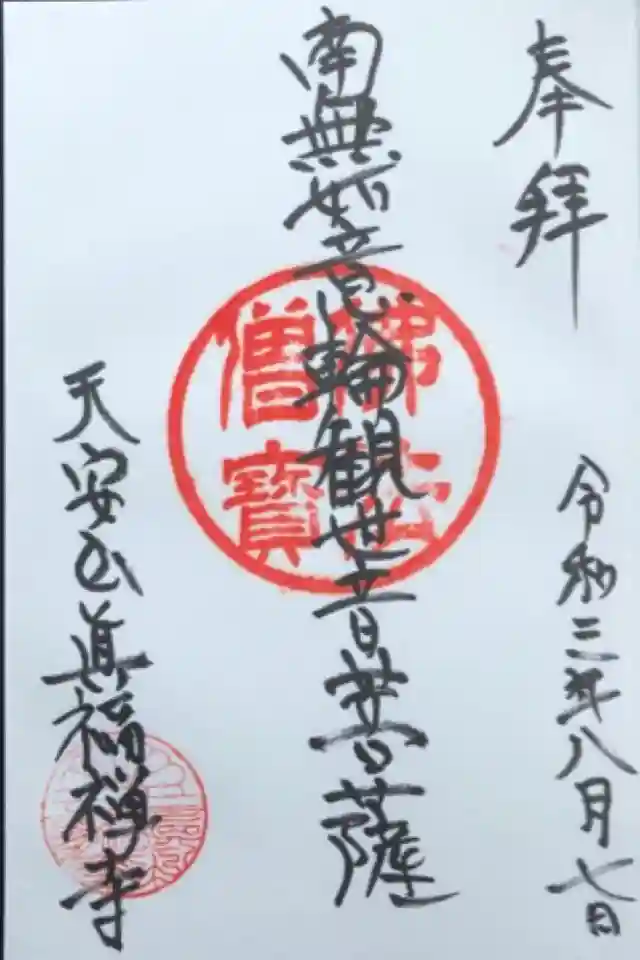 奉拝
令和三年八月七日
南無如意輪観世音菩薩
佛法
僧寶
天安山真福禅寺